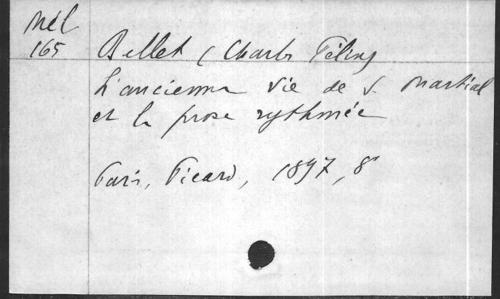 Mél
165
Bellet (Charles Félix)
L'ancienne vie de S. Martial
et la prose rythmée
Paris, Picard, 1897, 8°